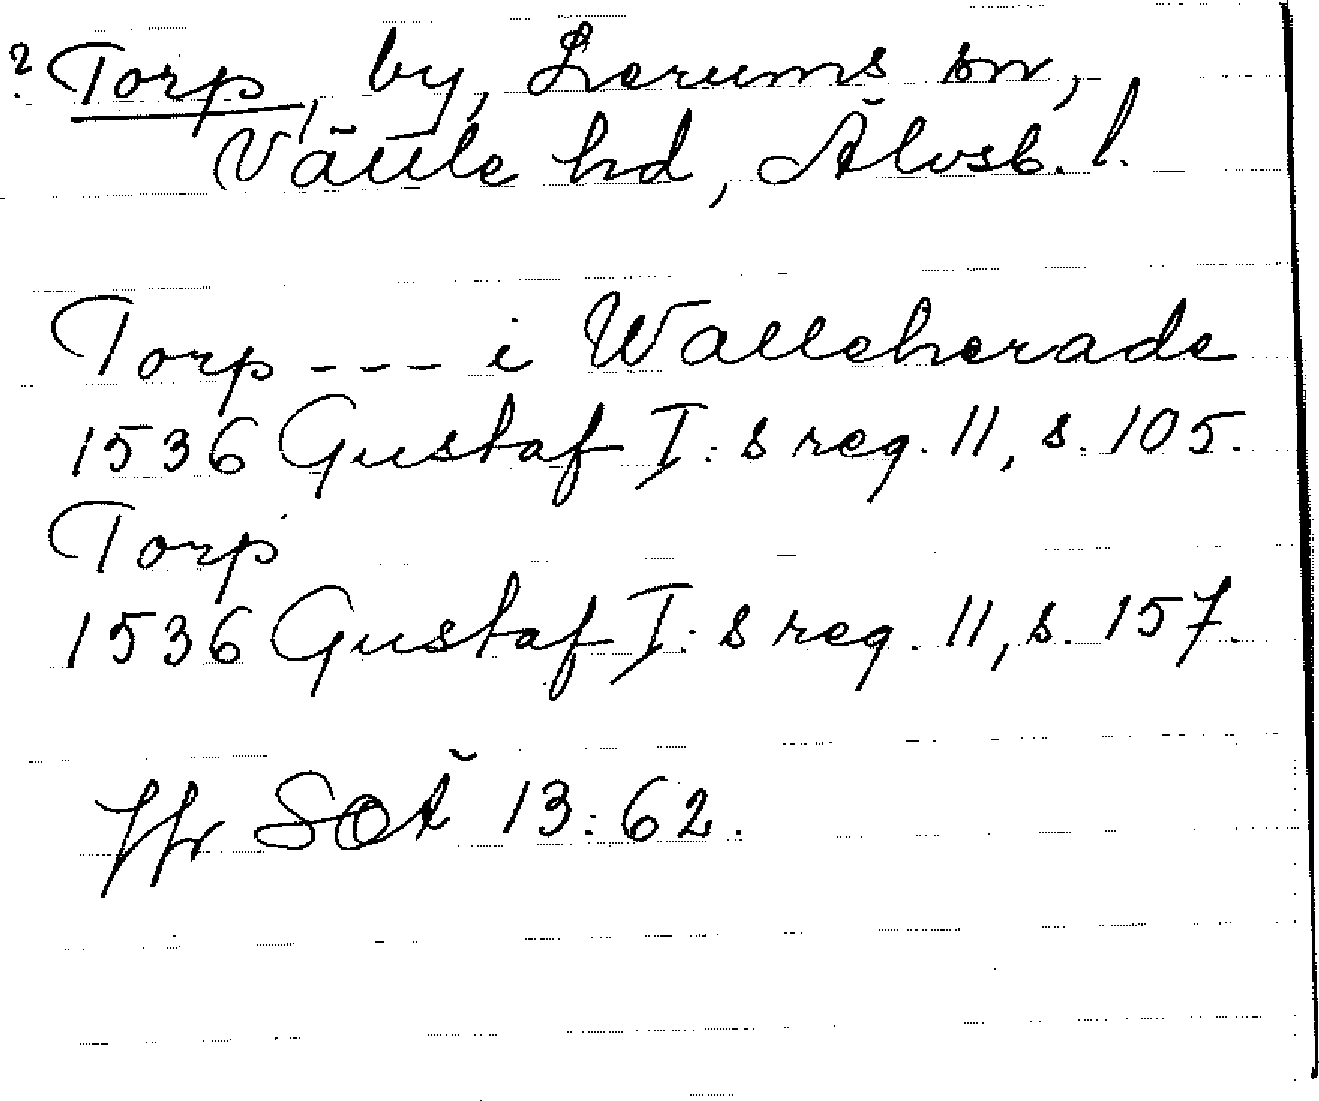 ? Torp, by, Lerums sn,
Vättle hd, Älvsb. l.
Torp --- i Walleherade
1536 Gustaf I:s reg. 11, s. 105.
Torp
1536 Gustaf I:s reg. 11, s. 157.
Jfr SOÄ 13:62.